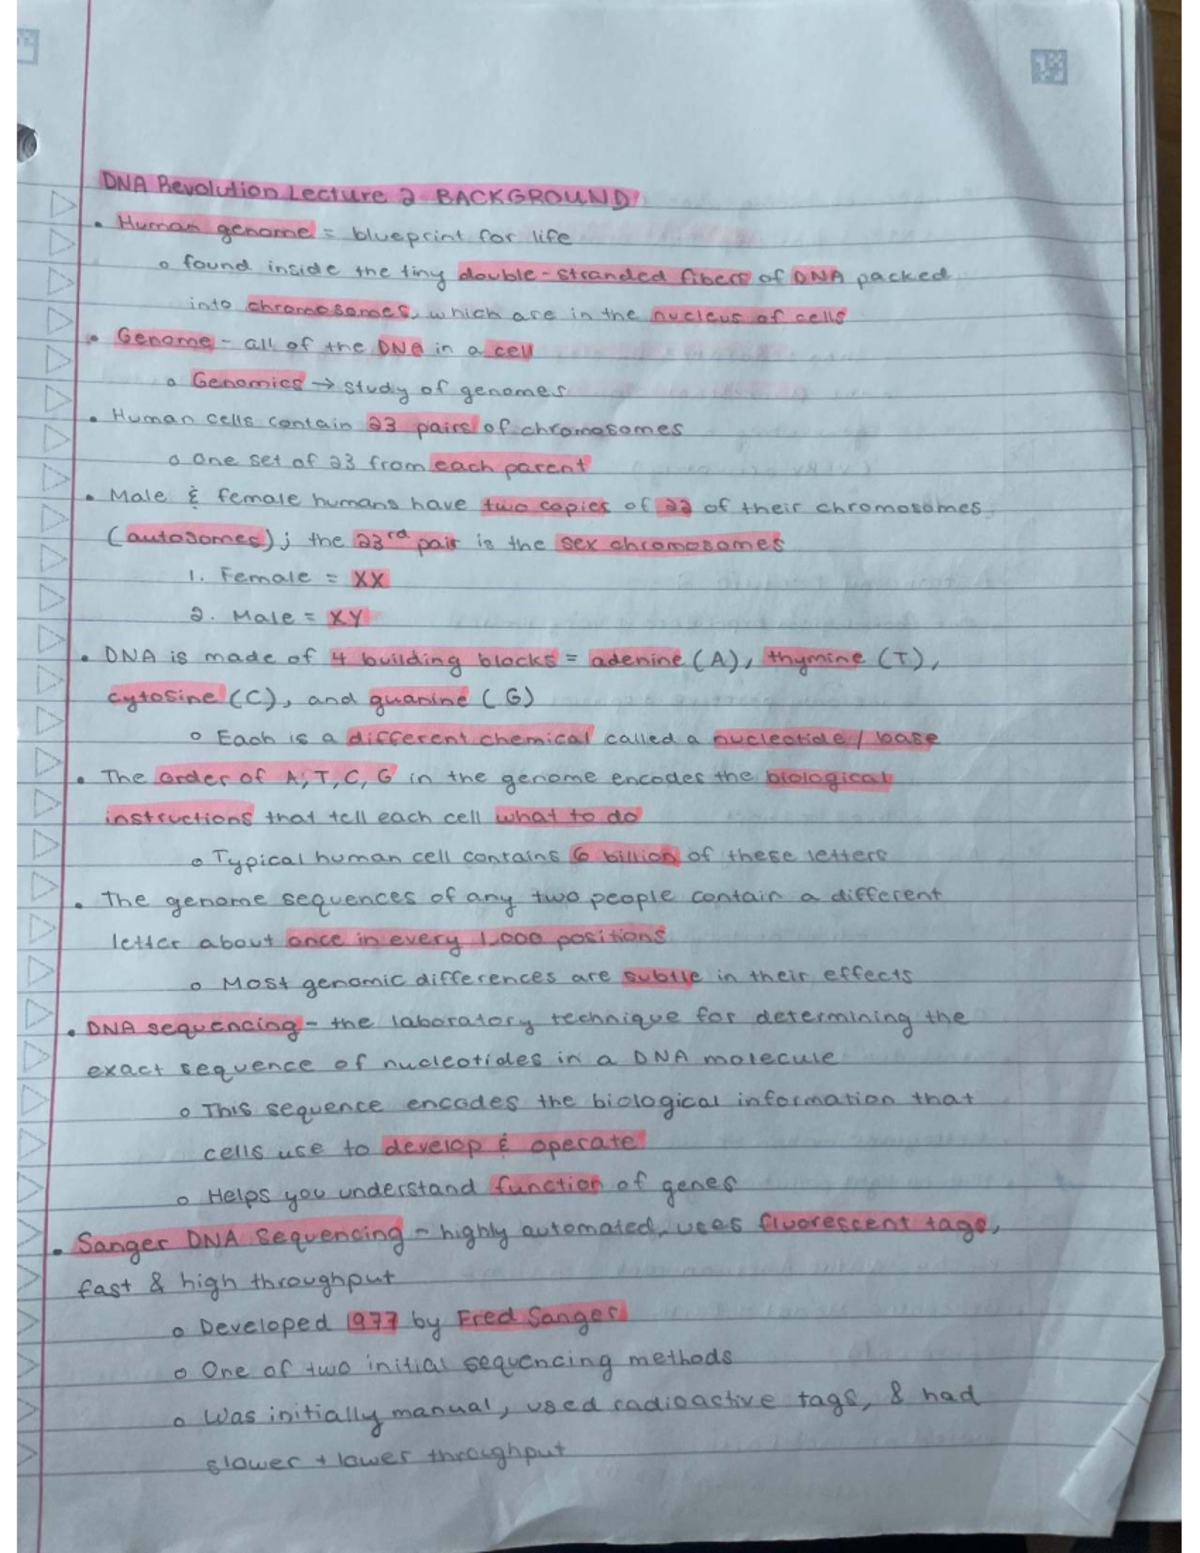 DNA Revolution Lecture 2 BACKGROUND
• Human genome = blueprint for life
o found inside the tiny double-stranded fibers of DNA packed
into chromosomes, which are in the nucleus of cells
• Genome - all of the DNA in a cell
o Genomics → study of genomes
• Human cells contain 23 pairs of chromosomes
o One set of 23 from each parent
• Male & female humans have two copies of 22 of their chromosomes
(autosomes); the 23rd pair is the sex chromosomes
1. Female = XX
2. Male = XY
• DNA is made of 4 building blocks = adenine (A), thymine (T),
cytosine (C), and guanine (G)
o Each is a different chemical called a nucleotide / base
• The order of A, T, C, G in the genome encodes the biological
instructions that tell each cell what to do
o Typical human cell contains 6 billion of these letters
• The genome sequences of any two people contain a different
letter about once in every 1,000 positions
o Most genomic differences are subtle in their effects
• DNA sequencing - the laboratory technique for determining the
exact sequence of nucleotides in a DNA molecule
o This sequence encodes the biological information that
cells use to develop & operate
o Helps you understand function of genes
• Sanger DNA Sequencing - highly automated, uses fluorescent tags,
fast & high throughput
o Developed 1977 by Fred Sanger
o One of two initial sequencing methods
o Was initially manual, used radioactive tags, & had
slower + lower throughput